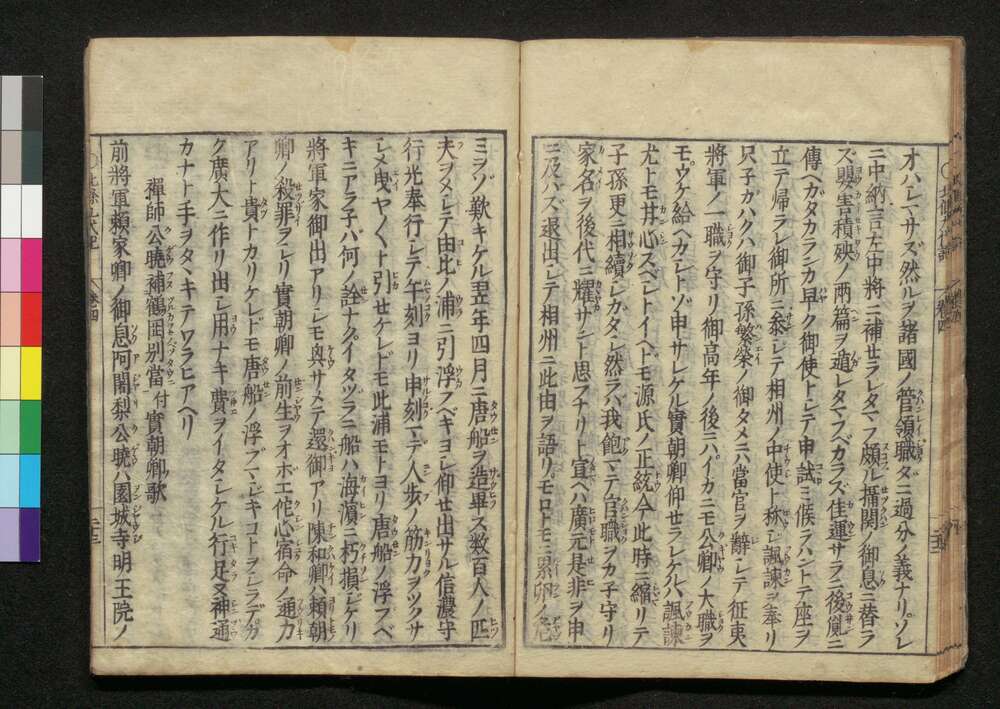 オハレマサズ然ルヲ諸國ノ管領職ダニ過分ノ義ナリソレ
ニ中納言左中将ニ補セラレタマフ頗ル攝関ノ御息ニ替ラ
ズ嬰害積殃ノ両篇ヲ遁レタマフベカラズ佳運サラニ後胤ニ
傳ヘガタカランカ早ク御使トシテ申試ミ候ラハントテ座ヲ
立テ帰ラレ御所ニ参レテ相州ノ中使ト称シ諷諫ヲ奉リ
只子ガハクハ御子孫繁榮ノ御タメニハ當官ヲ辭レテ征東
将軍ノ一職ヲ守リ御高年ノ後ニハイカニモ公卿ノ大職ヲ
モウケ給ヘカシトゾ申サレケル實朝卿仰セラレケルハ諷諫
尤トモ甘心スベシトイヘドモ源氏ノ正統今此時ニ縮リテ
子孫更ニ相續シガタシ然ラハ我飽マデ官職ヲカ子守リ
家名ヲ後代ニ耀サント思フナリト宣ヘハ廣元是非ヲ申
ニ及バズ退出シテ相州ニ此由ヲ語リモロトモニ累卵ノ
ミヲゾ歎キケル翌年四月ニ唐船ヲ造畢ス数百人ノ匹
夫ヲメシテ由比ノ浦ニ引浮スベキヨシ仰セ出サル信濃守
行光奉行シテ午刻ヨリ申刻マデ人歩ノ筋力ヲツクサ
シメ曳ヤ〱ト引セケレドモ此浦モトヨリ唐船ノ浮フベ
キニアラ子バ何ノ詮ナクイタヅラニ船ハ海濱ニ朽損シケリ
将軍家御出アリシモ興サメテ還御アリ陳和卿ハ頼朝
卿ノ殺罪ヲシリ實朝卿ノ前生ヲオボエ佗心宿命ノ通力
アリト貴トカリケレドモ唐船ノ浮ブマジキコトヲシラデカ
ク廣大ニ作リ出シ用ナキ費ヲイタシケル行足又神通
カナト手ヲタヽキテワラヒアヘリ
禪師公曉補鶴岡別當付實朝卿歌
前將軍頼家卿ノ御息阿闍梨公曉ハ園城寺明王院ノ